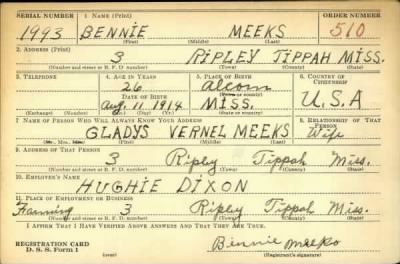 SERIAL NUMBER 1. NAME (Print) ORDER NUMBER
1993 BENNIE MEEKS 510
(First) (Middle) (Last)
2. ADDRESS (Print)
3 RIPLEY TIPPAH MISS.
(Number and street or R. F. D. number) (Town) (County) (State)
3. TELEPHONE 4. AGE IN YEARS 5. PLACE OF BIRTH 6. COUNTRY OF CITIZENSHIP
26 Alcorn
DATE OF BIRTH (Town or county)
Aug. 11 1914 MISS. U.S.A
(Exchange) (Number) (Mo.) (Day) (Yr.) (State or country)
7. NAME OF PERSON WHO WILL ALWAYS KNOW YOUR ADDRESS 8. RELATIONSHIP OF THAT PERSON
GLADYS VERNEL MEEKS Wife
(Mr., Mrs., Miss) (First) (Middle) (Last)
9. ADDRESS OF THAT PERSON
3 Ripley Tippah Miss.
(Number and street or R. F. D. number) (Town) (County) (State)
10. EMPLOYER'S NAME
HUGHIE DIXON
11. PLACE OF EMPLOYMENT OR BUSINESS
Farming 3 Ripley Tippah Miss.
(Number and street or R. F. D. number) (Town) (County) (State)
I AFFIRM THAT I HAVE VERIFIED ABOVE ANSWERS AND THAT THEY ARE TRUE.
REGISTRATION CARD
D. S. S. Form 1 (over) Bennie Meeks
(Registrant's signature)